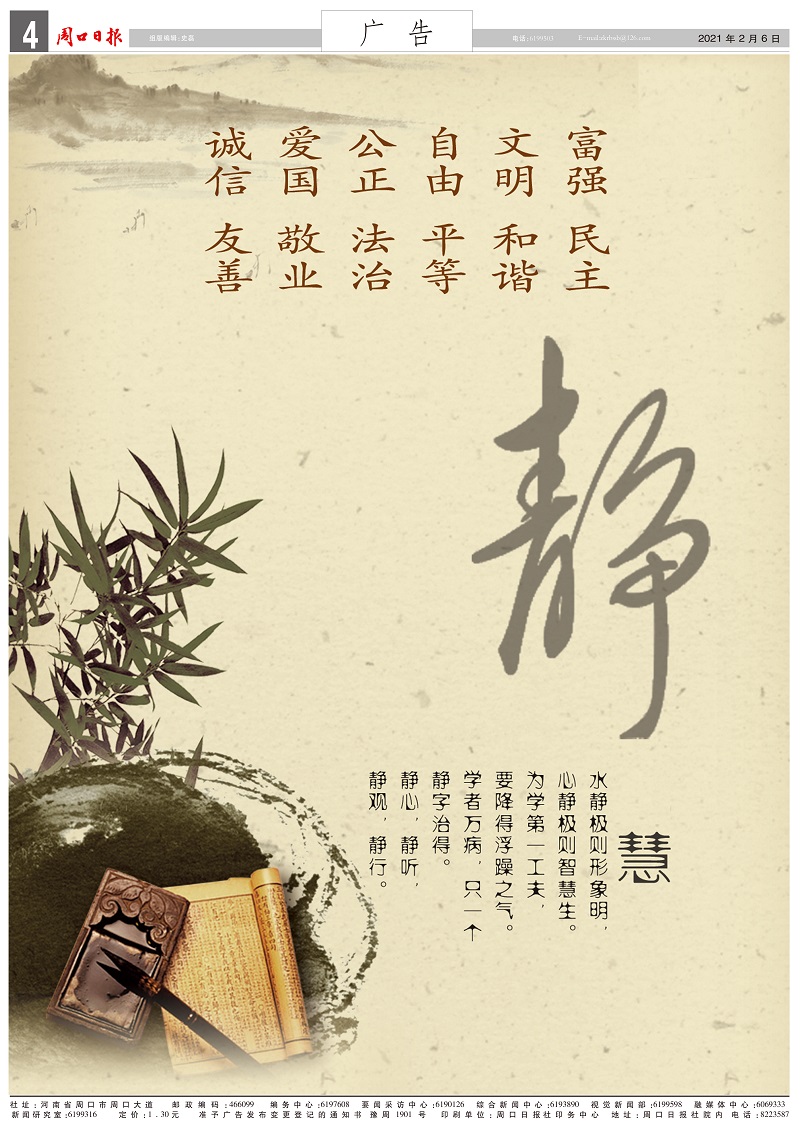 4 周口日报 组版编辑:史磊 广告 电话:6199503 2021年2月6日
富强 民主
文明 和谐
自由 平等
公正 法治
爱国 敬业
诚信 友善
静
慧
水静极则形象明，
心静极则智慧生。
为学第一工夫，
要降得浮躁之气。
学者万病，只一个
静字治得。
静心，静听，
静观，静行。
社址:河南省周口市周口大道 邮政编码:466099 编务中心:6197608 要闻采访中心:6190126 综合新闻中心:6193890 视觉新闻部:6199598 融媒体中心:6069333
新闻研究室:6199316 定价:1.30元 准予广告发布变更登记的通知书 豫周 1901 号 印刷单位:周口日报社印务中心 地址:周口日报社院内 电话:8223587